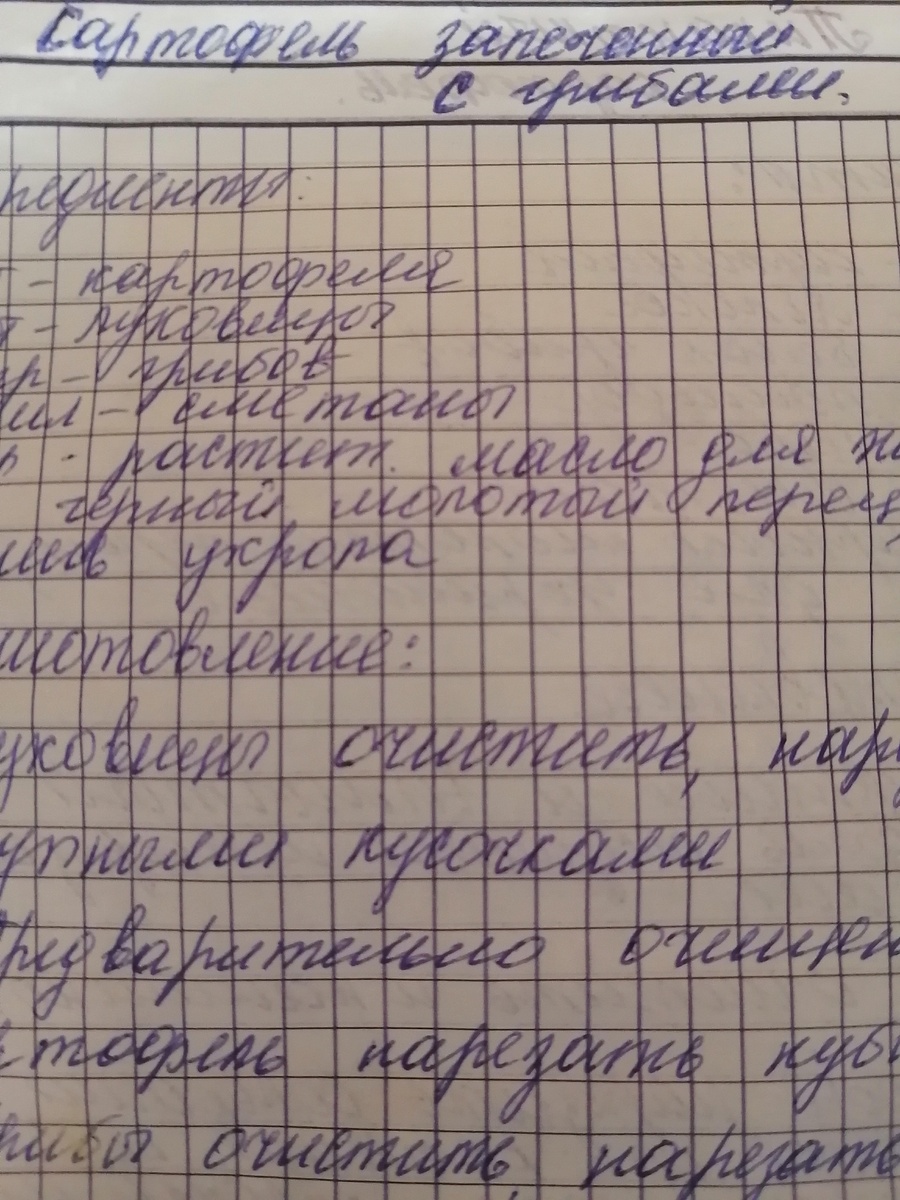 Картофель запеченный
с грибами.
редиенты:
т - картофеля
т - луковицы
гр - грибов
мл - сметаны
ь - растит. масло для жа
черный молотый перец,
ень укропа
иготовление:
уковицы очистить, нар
упными кусочками
Предварительно очищен
ртофель нарезать куби
рибы очистить, нарезать